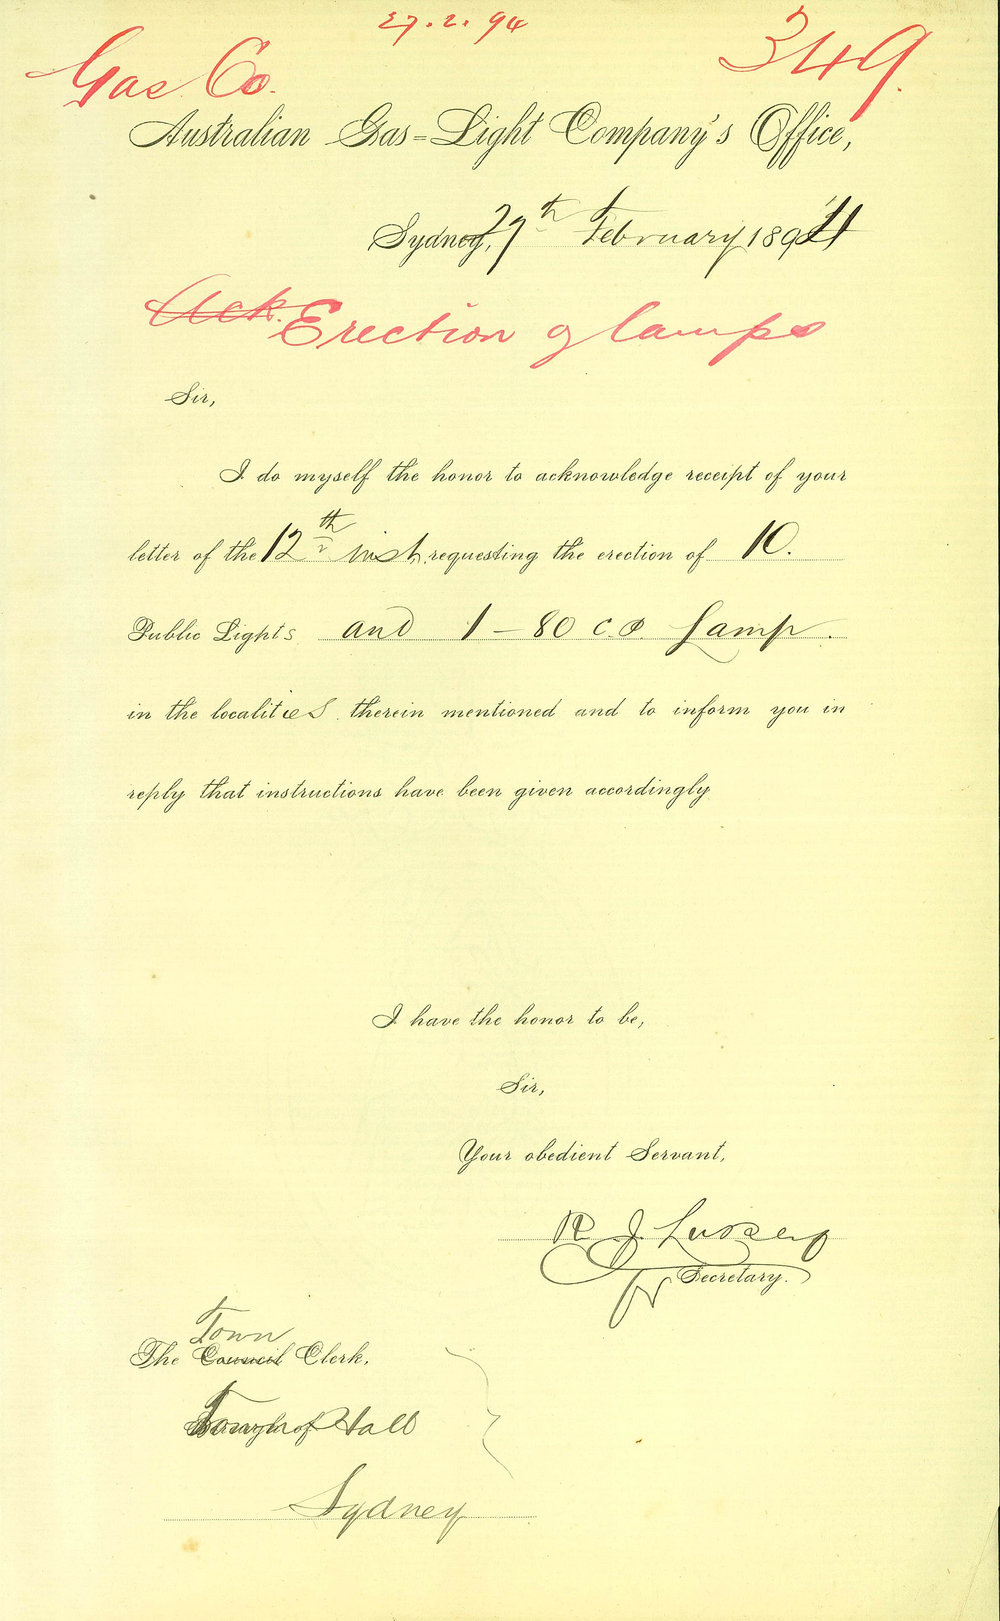 27.2.94
Gas Co. 349.
Australian Gas-Light Company's Office,
Sydney, 27th February 1894
Ack. Erection of lamps
Sir,
I do myself the honor to acknowledge receipt of your
letter of the 12th inst. requesting the erection of 10.
Public Lights and 1-80 c.p. Lamp.
in the localities therein mentioned and to inform you in
reply that instructions have been given accordingly
I have the honor to be,
Sir,
Your obedient Servant,
R J
Secretary.
Town
The Council Clerk,
Borough of Town Hall
Sydney